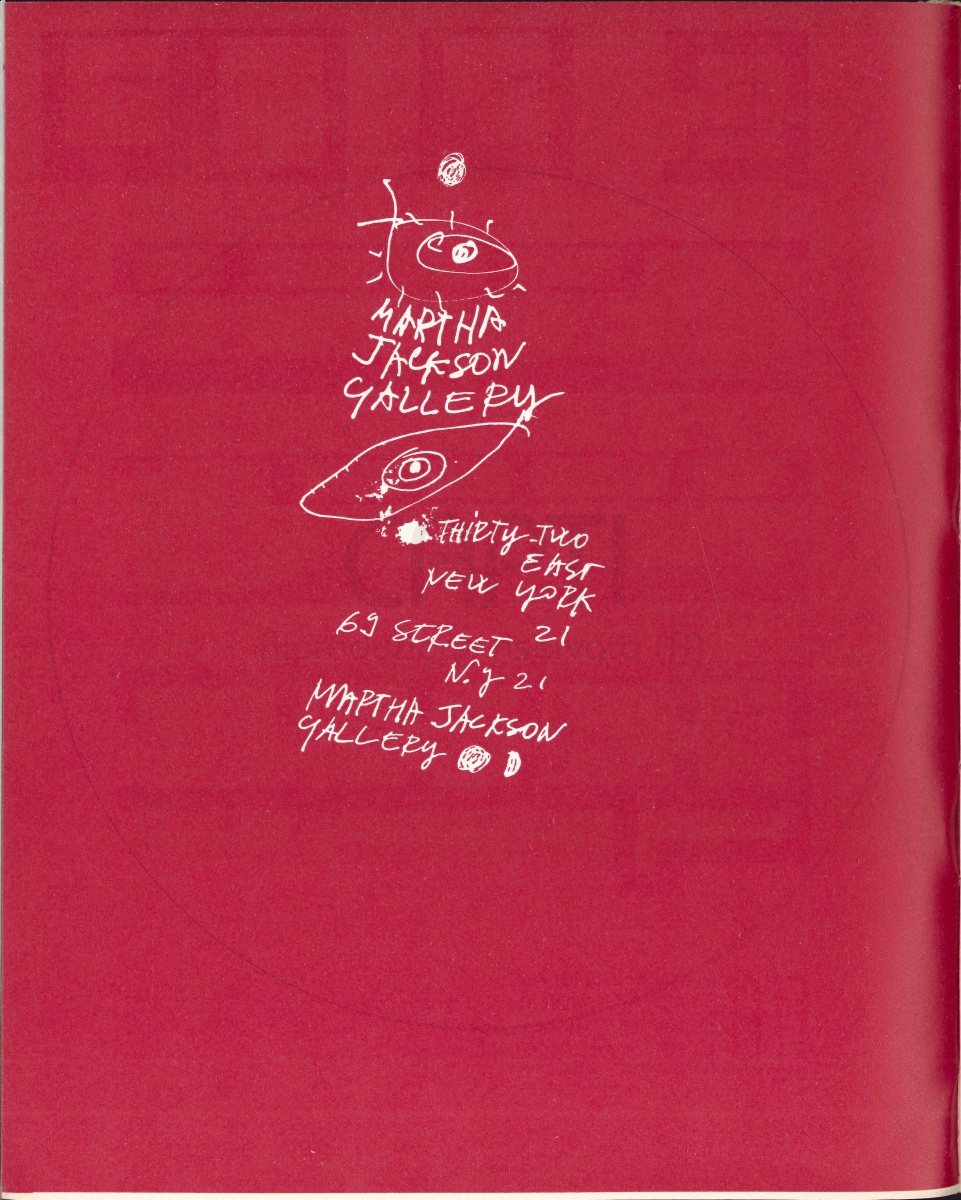 MARTHA
JACKSON
GALLERY
THIRTY-TWO
EAST
NEW YORK
69 STREET 21
N.Y 21
MARTHA JACKSON
GALLERY